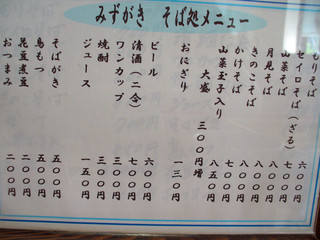 みずがき　そば処メニュー
もりそば　六〇〇円
セイロそば（ざる）　七〇〇円
山菜そば　八〇〇円
月見そば　八〇〇円
きのこそば　八〇〇円
かけそば　七〇〇円
山菜玉子入り　八五〇円
大盛　三〇〇円増
おにぎり　一三〇円
ビール　六〇〇円
清酒（二合）　七〇〇円
ワンカップ　三〇〇円
焼酎　三〇〇円
ジュース　一五〇円
そばがき　五〇〇円
鳥もつ　五〇〇円
花豆煮豆　二〇〇円
おつまみ　二〇〇円